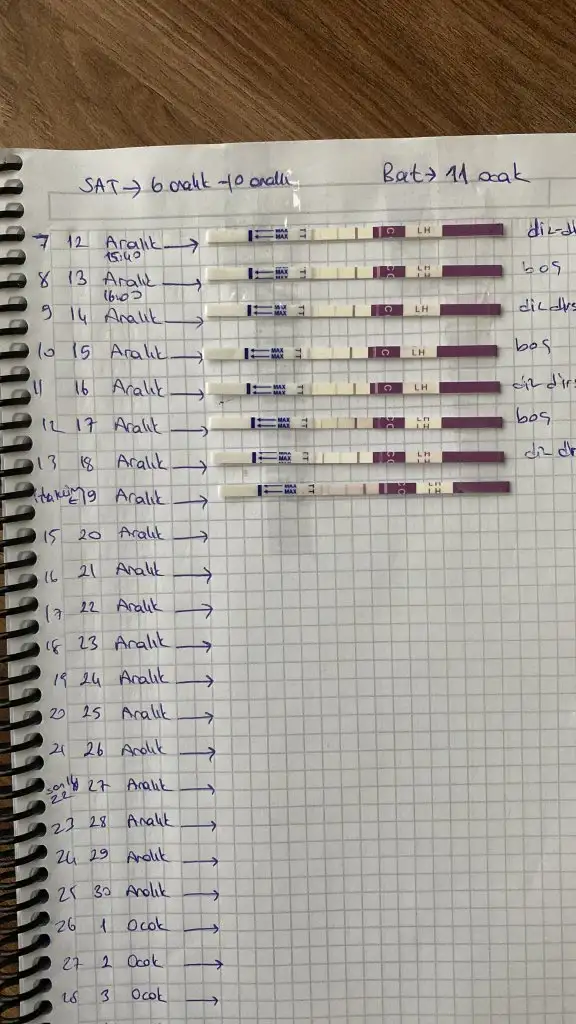 SAT → 6 aralık -10 aralık Bat → 11 ocak
7 12 Aralık → MAX MAX C LH
15:40
8 13 Aralık → MAX MAX LH LH boş
16:00
9 14 Aralık → MAX MAX C LH
10 15 Aralık → MAX MAX C LH boş
11 16 Aralık → MAX MAX C LH
12 17 Aralık → MAX MAX LH LH boş
13 18 Aralık → MAX MAX LH LH
19 Aralık → MAX MAX LH LH
15 20 Aralık →
16 21 Aralık →
17 22 Aralık →
18 23 Aralık →
19 24 Aralık →
20 25 Aralık →
21 26 Aralık →
22 27 Aralık →
23 28 Aralık →
24 29 Aralık →
25 30 Aralık →
26 1 Ocak →
27 2 Ocak →
28 3 Ocak →